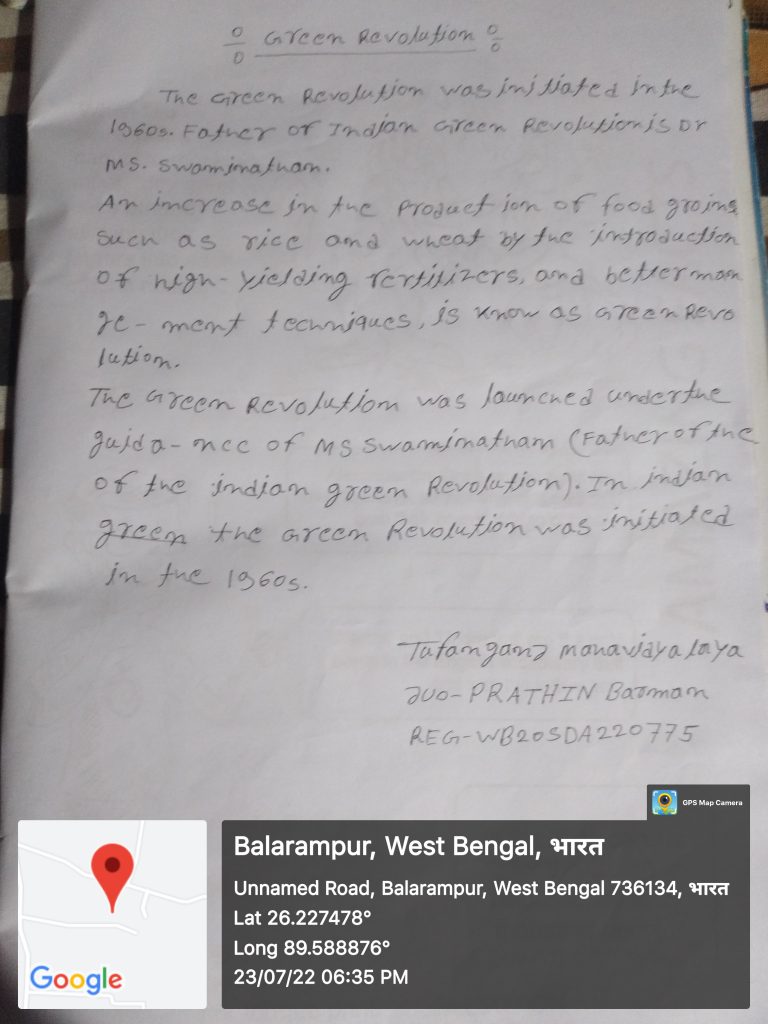 % Green Revolution %
The Green Revolution was initiated in the
1960s. Father of Indian Green Revolution is Dr
MS. Swaminatham.
An increase in the Production of food grains
such as rice and wheat by the introduction
of high-yielding fertitizers, and better man
ge-ment techniques, is know as Green Revo
lution.
The Green Revolution was launched under the
guida-nce of MS Swaminatham (Father of the
of the indian green Revolution). In indian
green the Green Revolution was initiated
in the 1960s.
Tufanganj mahavidyalaya
JUO-PRATHIN Barman
REG-WB20SDA220775
GPS Map Camera
Balarampur, West Bengal, भारत
Unnamed Road, Balarampur, West Bengal 736134, भारत
Lat 26.227478°
Long 89.588876°
23/07/22 06:35 PM
Google